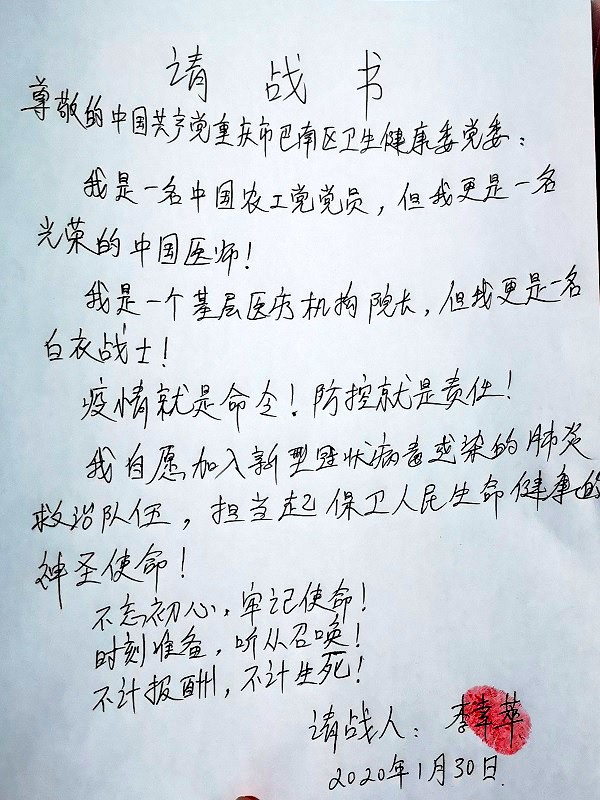 请战书
尊敬的中国共产党重庆市巴南区卫生健康委党委：
我是一名中国农工党党员，但我更是一名
光荣的中国医师！
我是一个基层医疗机构院长，但我更是一名
白衣战士！
疫情就是命令！防控就是责任！
我自愿加入新型冠状病毒感染的肺炎
救治队伍，担当起保卫人民生命健康的
神圣使命！
不忘初心，牢记使命！
时刻准备，听从召唤！
不计报酬，不计生死！
请战人：李幸萍
2020年1月30日